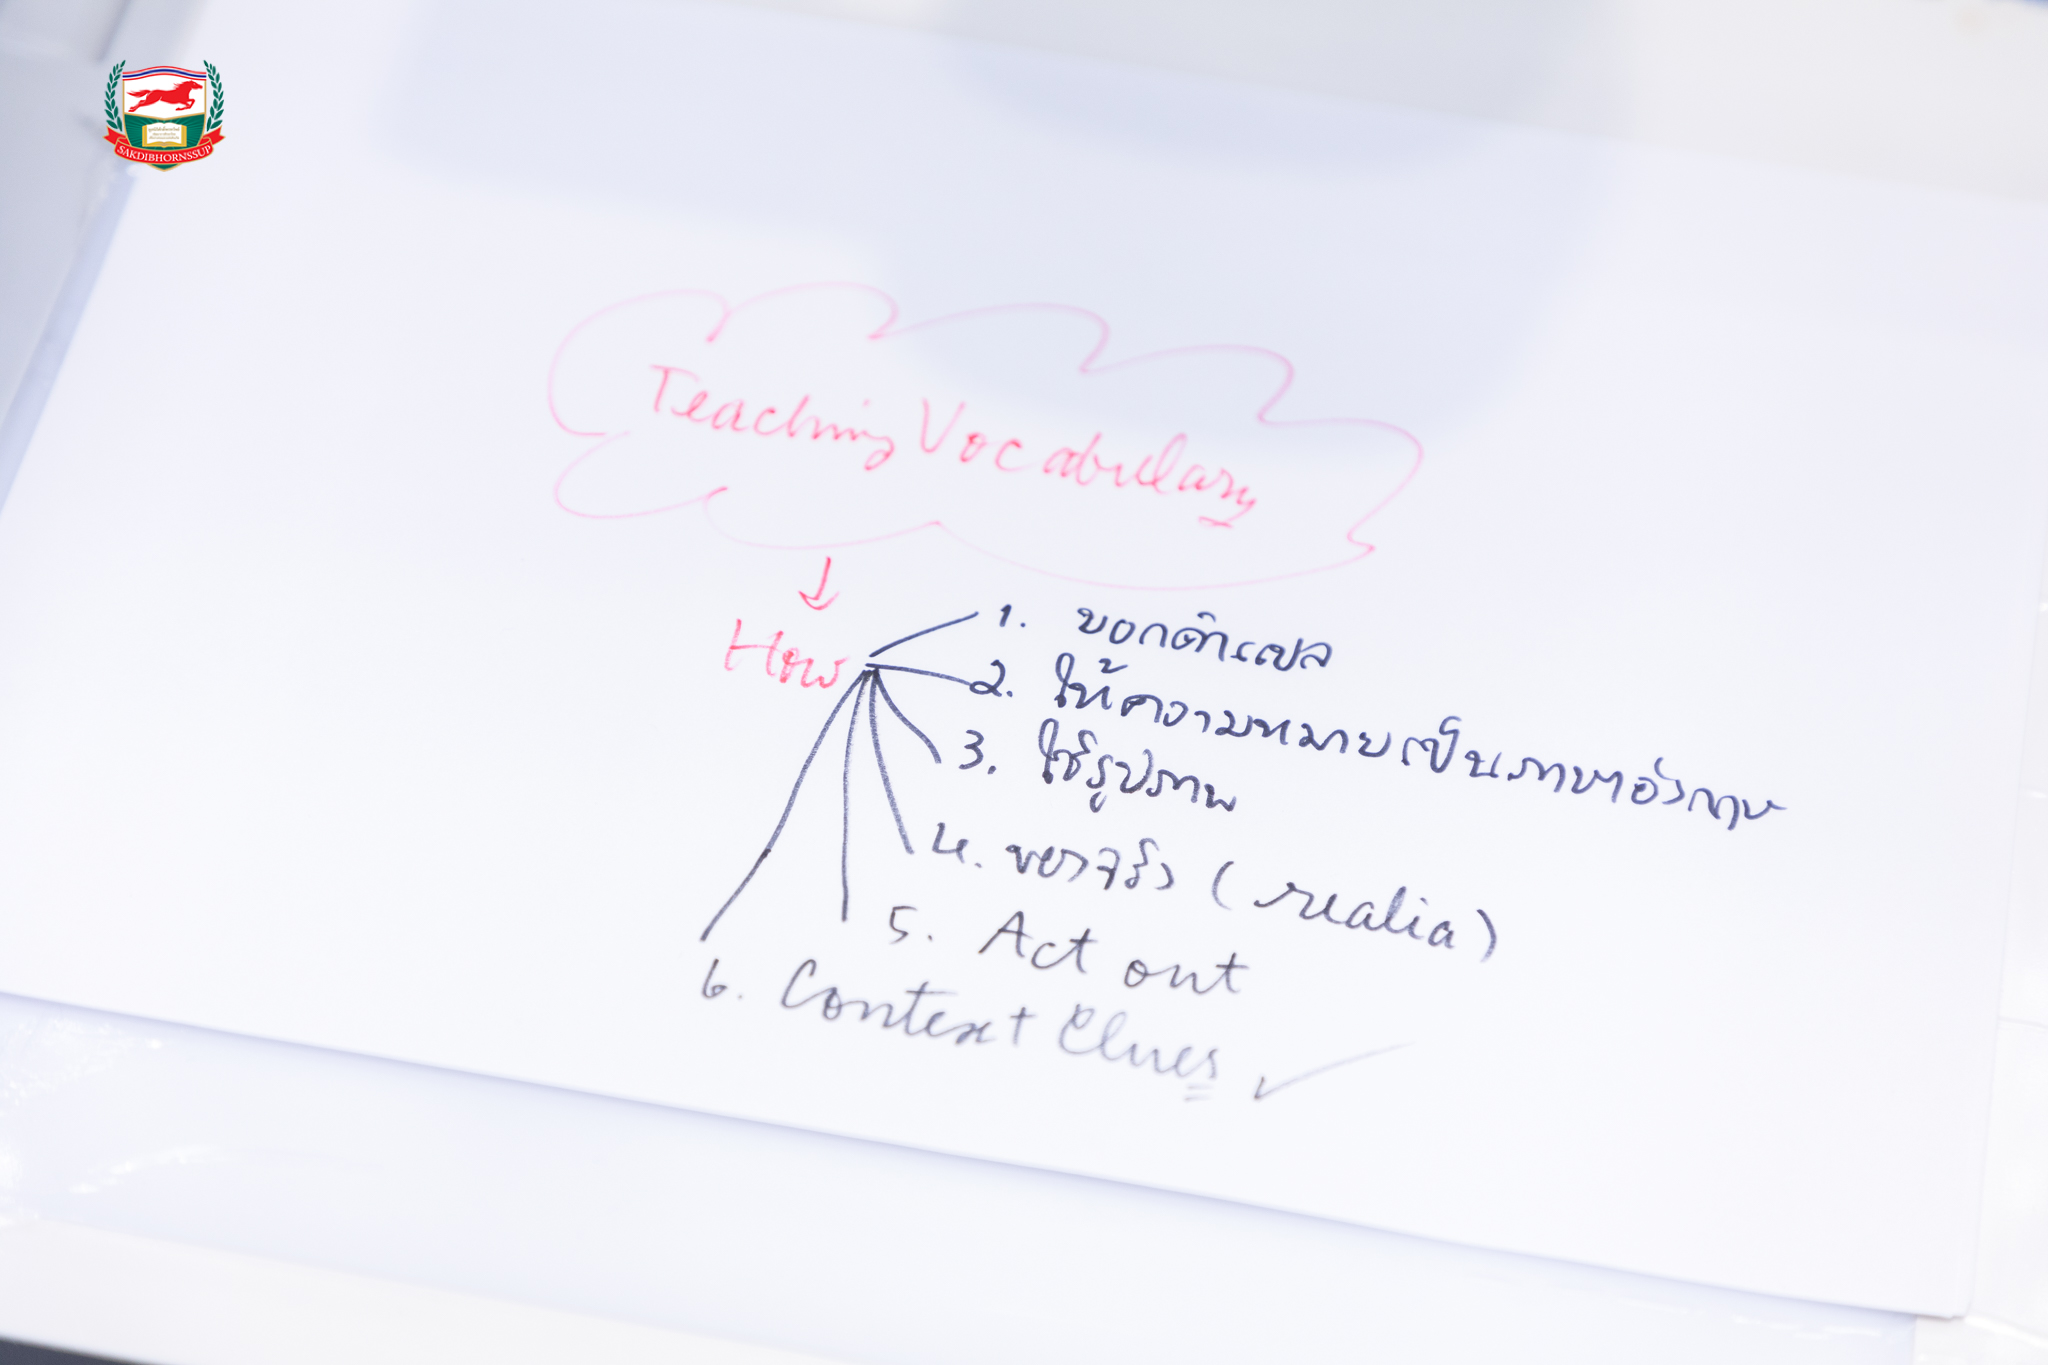 SAKDIBHORNSSUP
Teaching Vocabulary
How
1. บอกคำแปล
2. ให้ความหมายเป็นภาษาอังกฤษ
3. ใช้รูปภาพ
4. ของจริง (realia)
5. Act out
6. Context Clues ✓